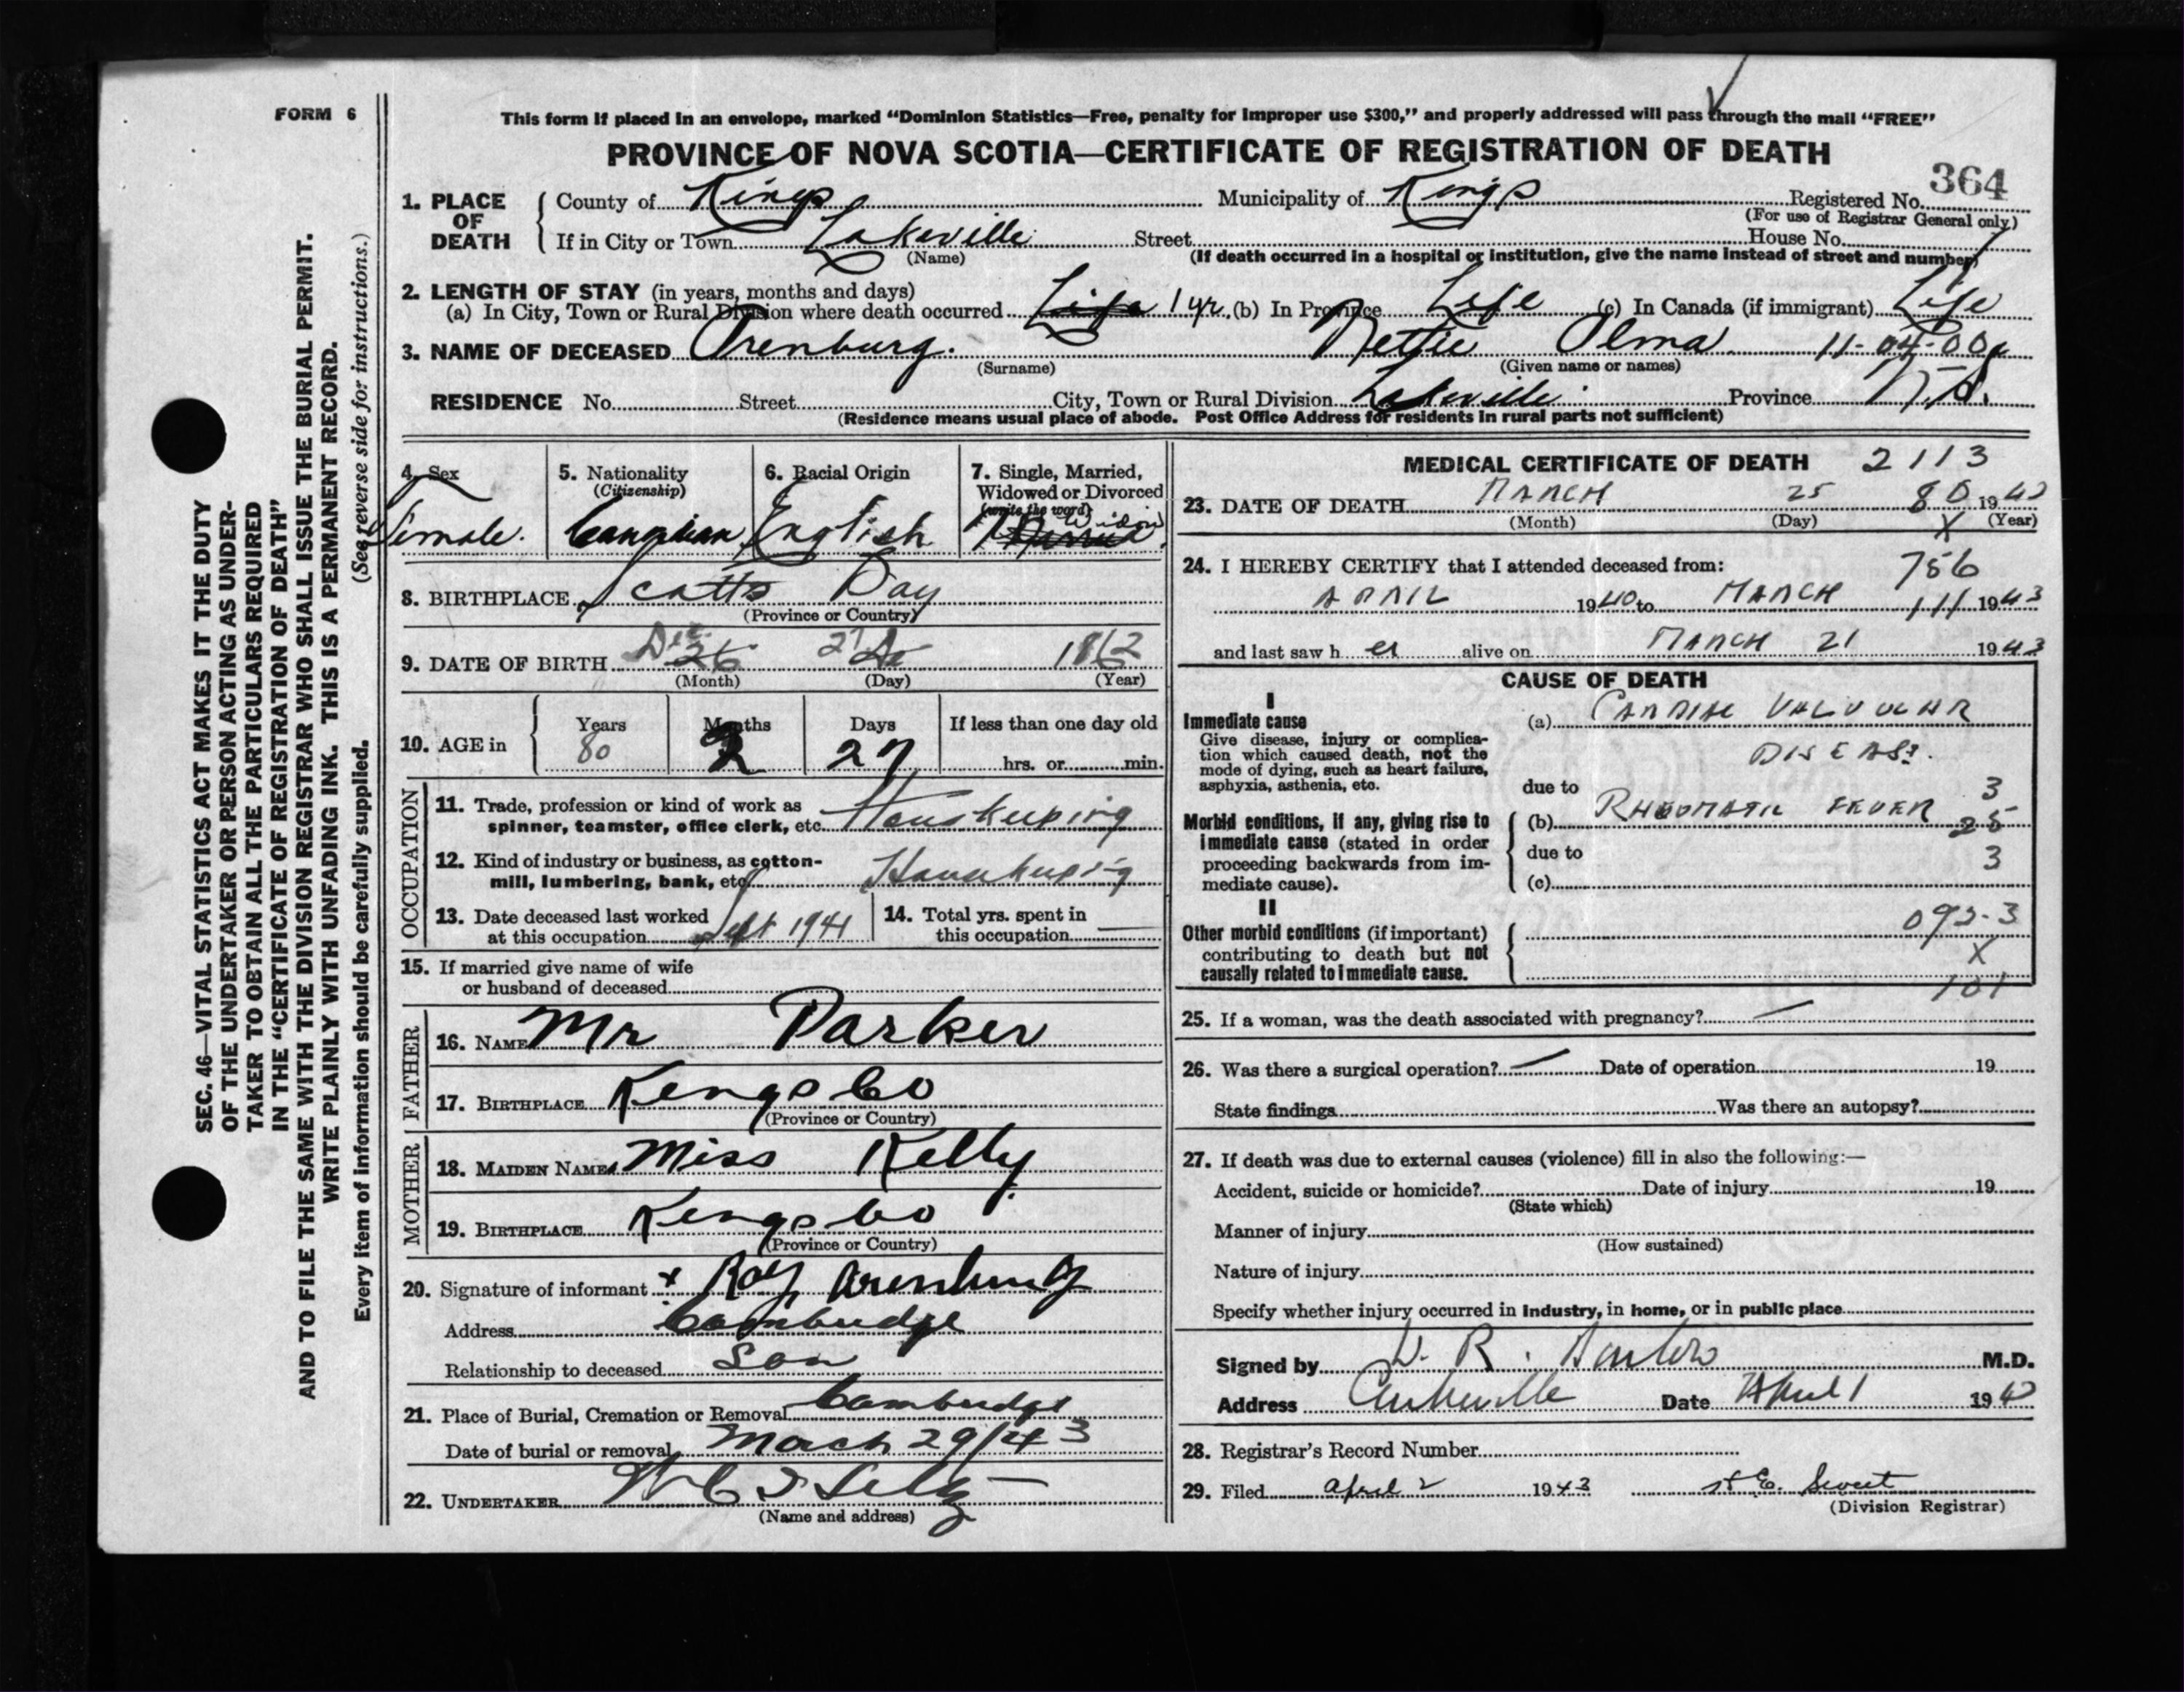 FORM 6
This form if placed in an envelope, marked “Dominion Statistics—Free, penalty for improper use $300,” and properly addressed will pass through the mail “FREE”
PROVINCE OF NOVA SCOTIA—CERTIFICATE OF REGISTRATION OF DEATH
364
1. PLACE OF DEATH
County of Kings Municipality of Kings Registered No.
(For use of Registrar General only)
If in City or Town Lakeville Street House No.
(Name) (If death occurred in a hospital or institution, give the name instead of street and number)
2. LENGTH OF STAY (in years, months and days)
(a) In City, Town or Rural Division where death occurred Life 1 yr. (b) In Province Life (c) In Canada (if immigrant) Life
3. NAME OF DECEASED Orenburg. Nettie Olma 11-04-00
(Surname) (Given name or names)
RESIDENCE No. Street City, Town or Rural Division Lakeville Province N.S.
(Residence means usual place of abode. Post Office Address for residents in rural parts not sufficient)
SEC. 46—VITAL STATISTICS ACT MAKES IT THE DUTY
OF THE UNDERTAKER OR PERSON ACTING AS UNDER-
TAKER TO OBTAIN ALL THE PARTICULARS REQUIRED
IN THE “CERTIFICATE OF REGISTRATION OF DEATH”
AND TO FILE THE SAME WITH THE DIVISION REGISTRAR WHO SHALL ISSUE THE BURIAL PERMIT.
WRITE PLAINLY WITH UNFADING INK. THIS IS A PERMANENT RECORD.
Every item of information should be carefully supplied. (See reverse side for instructions.)
4. Sex
Female.
5. Nationality
(Citizenship)
Canadian
6. Racial Origin
English
7. Single, Married,
Widowed or Divorced
(write the word)
Widow
Married
8. BIRTHPLACE Scotts Bay
(Province or Country)
9. DATE OF BIRTH Dec 26 27 1862
(Month) (Day) (Year)
10. AGE in
Years Months Days If less than one day old
80 2 27 hrs. or min.
OCCUPATION
11. Trade, profession or kind of work as
spinner, teamster, office clerk, etc. Houskeeping
12. Kind of industry or business, as cotton-
mill, lumbering, bank, etc. Housekeeping
13. Date deceased last worked
at this occupation Sept 1941
14. Total yrs. spent in
this occupation —
15. If married give name of wife
or husband of deceased
FATHER
16. NAME Mr Parker
17. BIRTHPLACE Kings Co
(Province or Country)
MOTHER
18. MAIDEN NAME Miss Kelly
19. BIRTHPLACE Kings Co
(Province or Country)
20. Signature of informant x Roy Orenburg
Address Cambridge
Relationship to deceased Son
21. Place of Burial, Cremation or Removal Cambridge
Date of burial or removal March 29/43
22. UNDERTAKER
(Name and address)
MEDICAL CERTIFICATE OF DEATH 2113
23. DATE OF DEATH MARCH 25 80 1943
(Month) (Day) X (Year)
24. I HEREBY CERTIFY that I attended deceased from: 756
APRIL 1940 to MARCH 111 1943
and last saw h er alive on MARCH 21 1943
CAUSE OF DEATH
I
Immediate cause
Give disease, injury or complica-
tion which caused death, not the
mode of dying, such as heart failure,
asphyxia, asthenia, etc.
(a) CARDIAC VALVULAR
DISEASE.
due to 3
Morbid conditions, if any, giving rise to
immediate cause (stated in order
proceeding backwards from im-
mediate cause).
(b) RHEUMATIC FEVER 25
due to 3
(c)
II
Other morbid conditions (if important)
contributing to death but not
causally related to immediate cause.
092-3
X
101
25. If a woman, was the death associated with pregnancy? —
26. Was there a surgical operation? — Date of operation 19
State findings Was there an autopsy?
27. If death was due to external causes (violence) fill in also the following:—
Accident, suicide or homicide? Date of injury 19
(State which)
Manner of injury
(How sustained)
Nature of injury
Specify whether injury occurred in industry, in home, or in public place
Signed by M.D.
Address Date April 1 194
28. Registrar’s Record Number
29. Filed april 2 1943 E. Sweet
(Division Registrar)